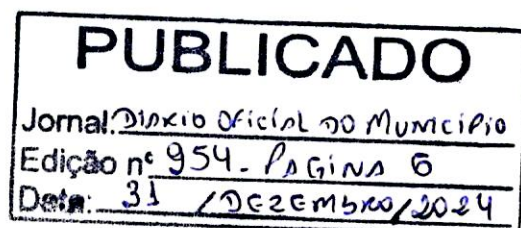 PUBLICADO
Jornal: DIÁRIO OFICIAL DO MUNICÍPIO
Edição nº 954 - PAGINA 6
Data: 31 / DEZEMBRO / 2024